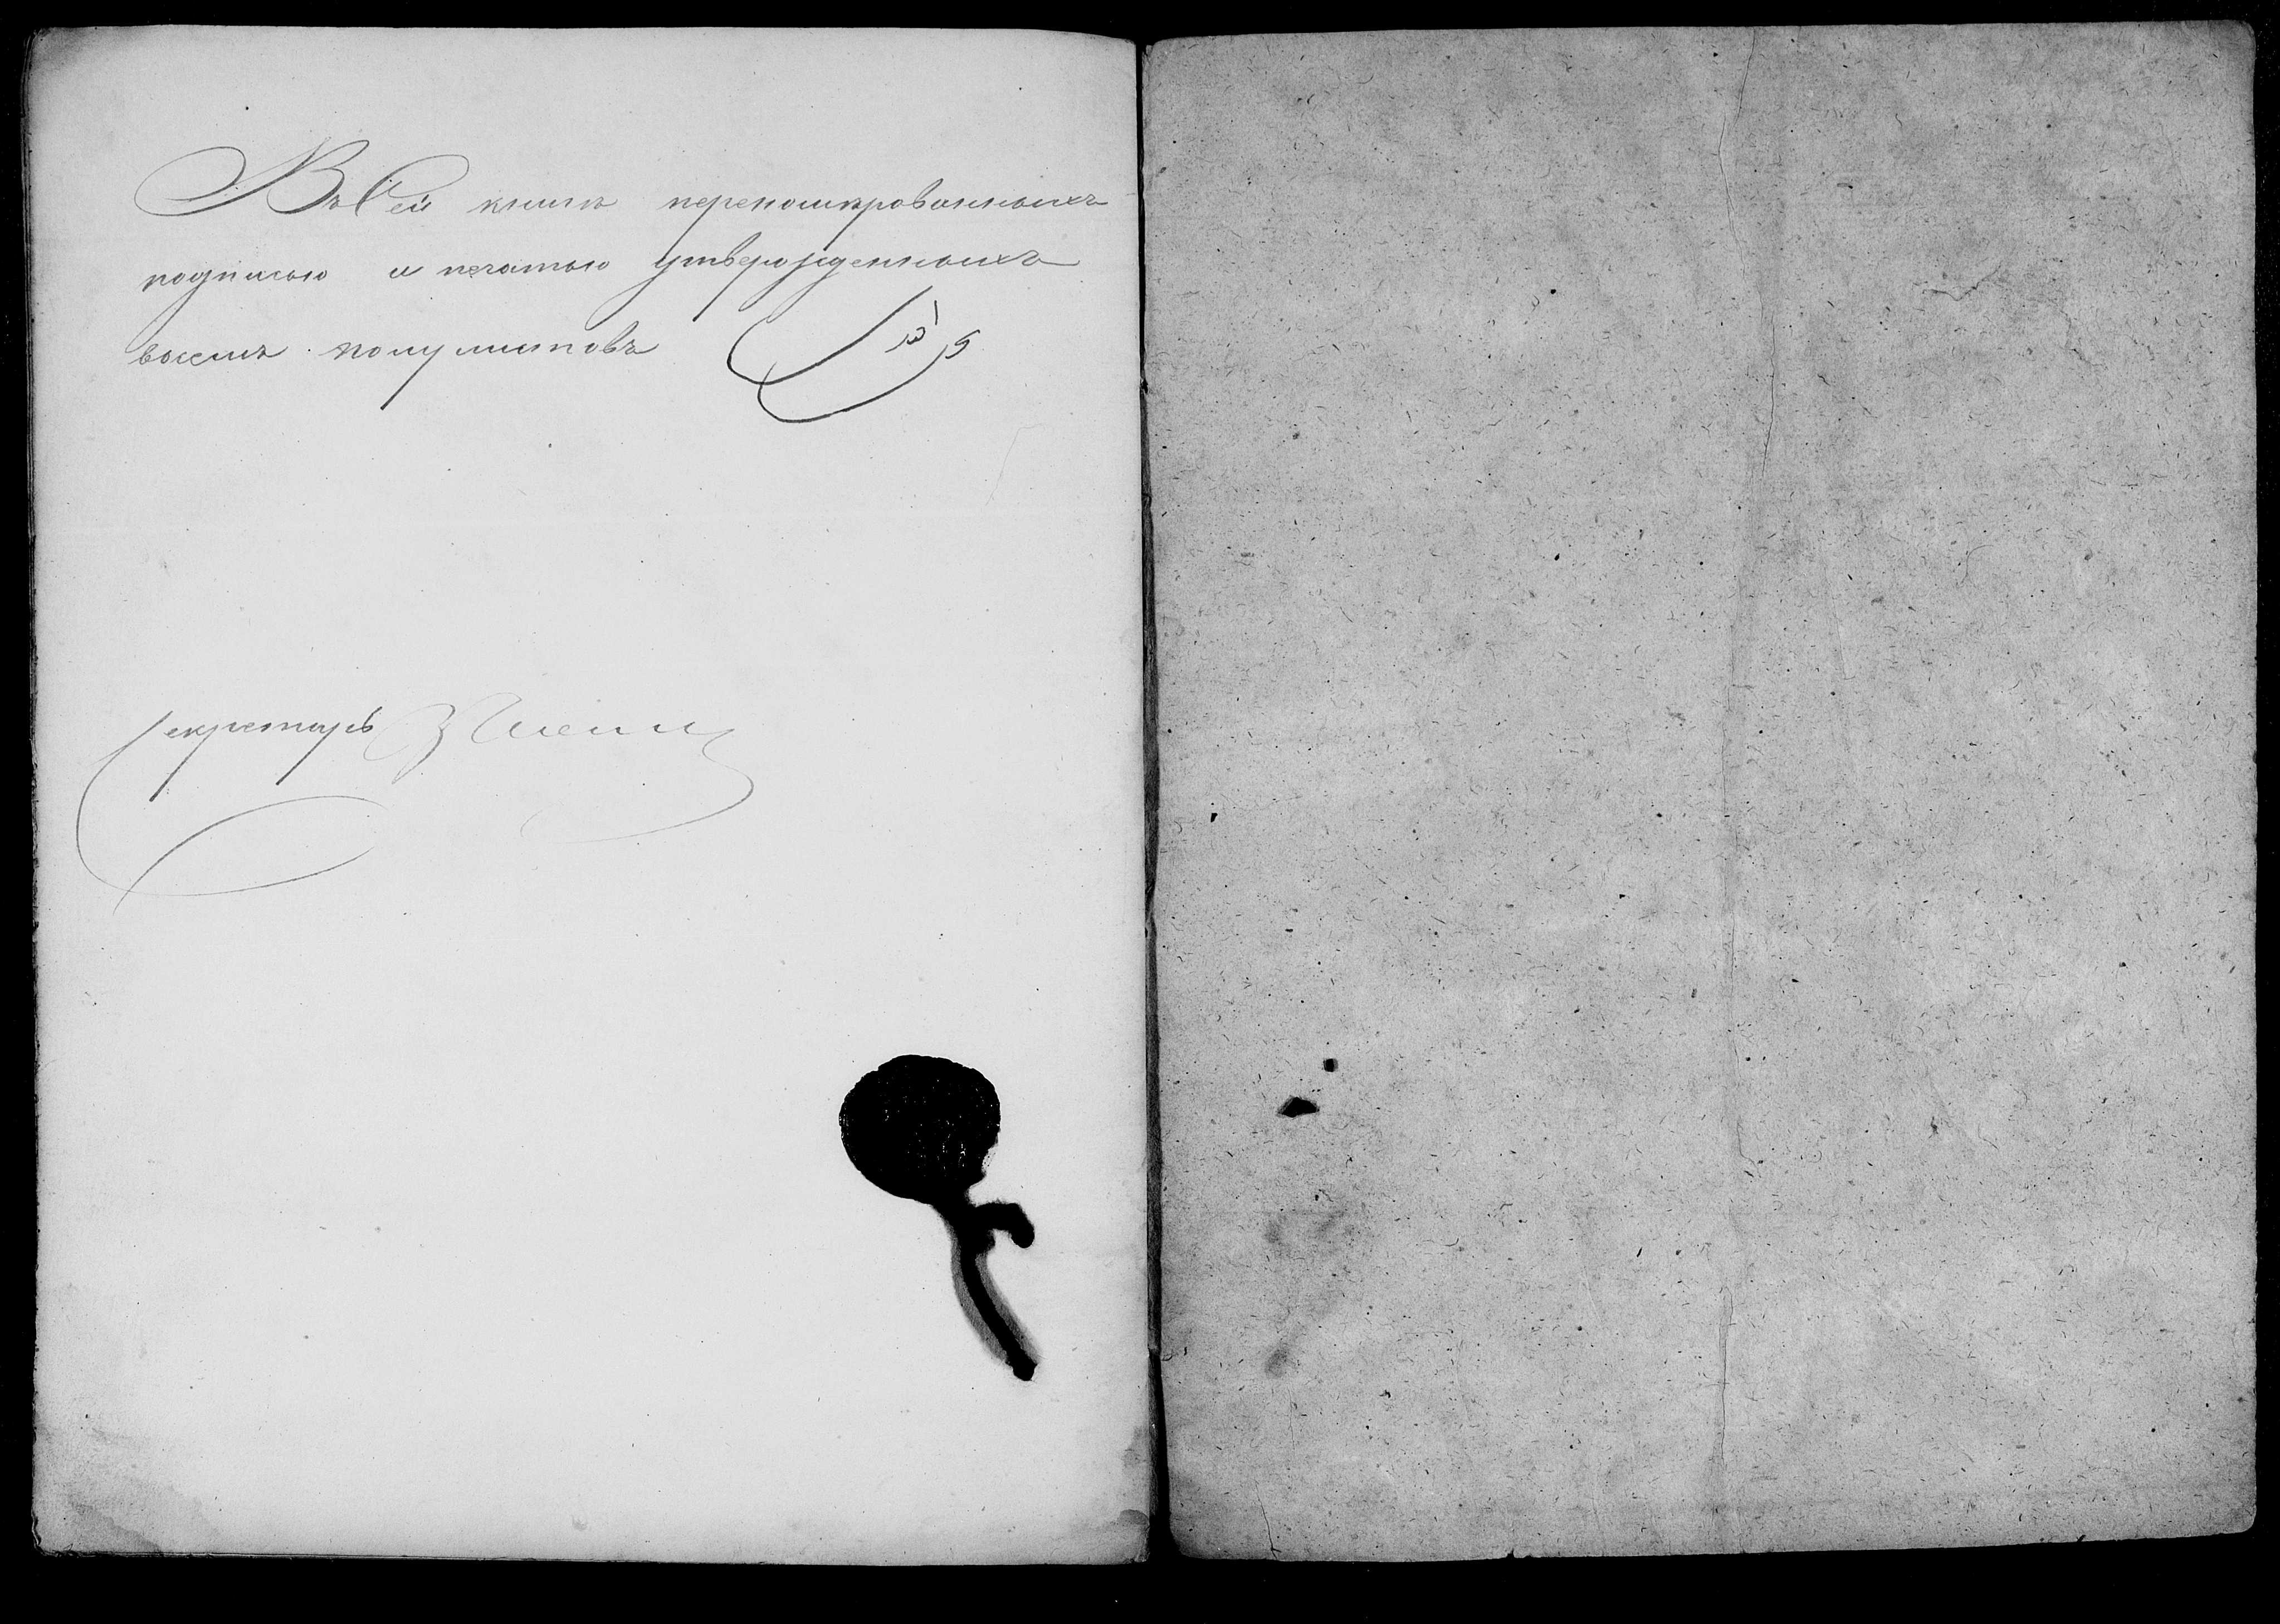 Въ Сей книгѣ переномированныхъ
подписью и печатью утвержденныхъ
восемь полулистовъ
Секретарь